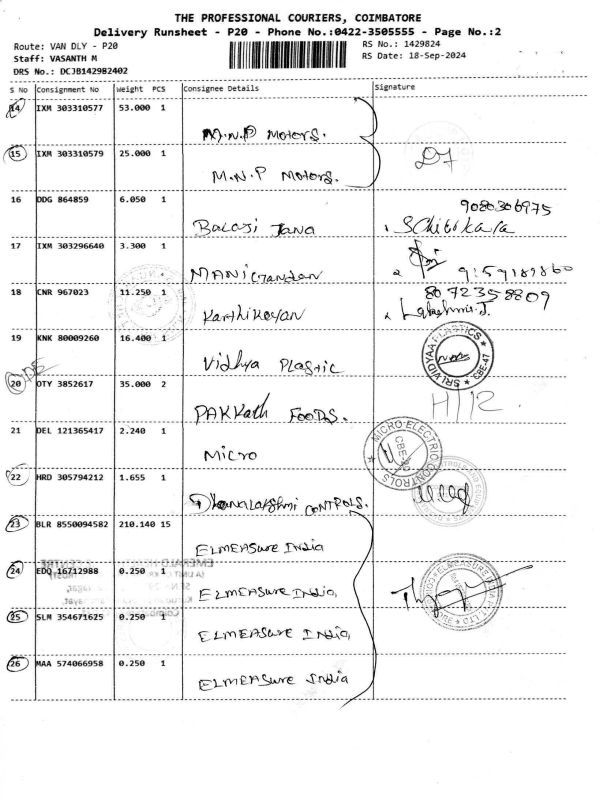 THE PROFESSIONAL COURIERS, COIMBATORE
Delivery Runsheet - P20 - Phone No.:0422-3505555 - Page No.:2
Route: VAN DLY - P20
Staff: VASANTH M
DRS No.: DCJB142982402
RS No.: 1429824
RS Date: 18-Sep-2024
S No Consignment No Weight PCS Consignee Details Signature
14 IXM 303310577 53.000 1
M.N.P Motors.
15 IXM 303310579 25.000 1
M.N.P Motors.
16 DDG 864859 6.050 1
9080306975
Balaji Jana
17 IXM 303296640 3.300 1
Manicandan
9159189860
18 CNR 967023 11.250 1
8072358809
Karthikeyan
Lakshmi.J.
19 KNK 80009260 16.400 1
Vidhya Plastic
SRI VIDYAA PLASTICS
CBE-47
20 OTY 3852617 35.000 2
Pakkath Foods.
21 DEL 121365417 2.240 1
Micro
MICRO ELECTRIC CONTROLS
22 HRD 305794212 1.655 1
Dhanalakshmi Controls.
23 BLR 8550094582 210.140 15
ELMEASURE India
24 EDQ 16712988 0.250 1
ELMEASURE India,
25 SLM 354671625 0.250 1
ELMEASURE India,
26 MAA 574066958 0.250 1
ELMEASURE India